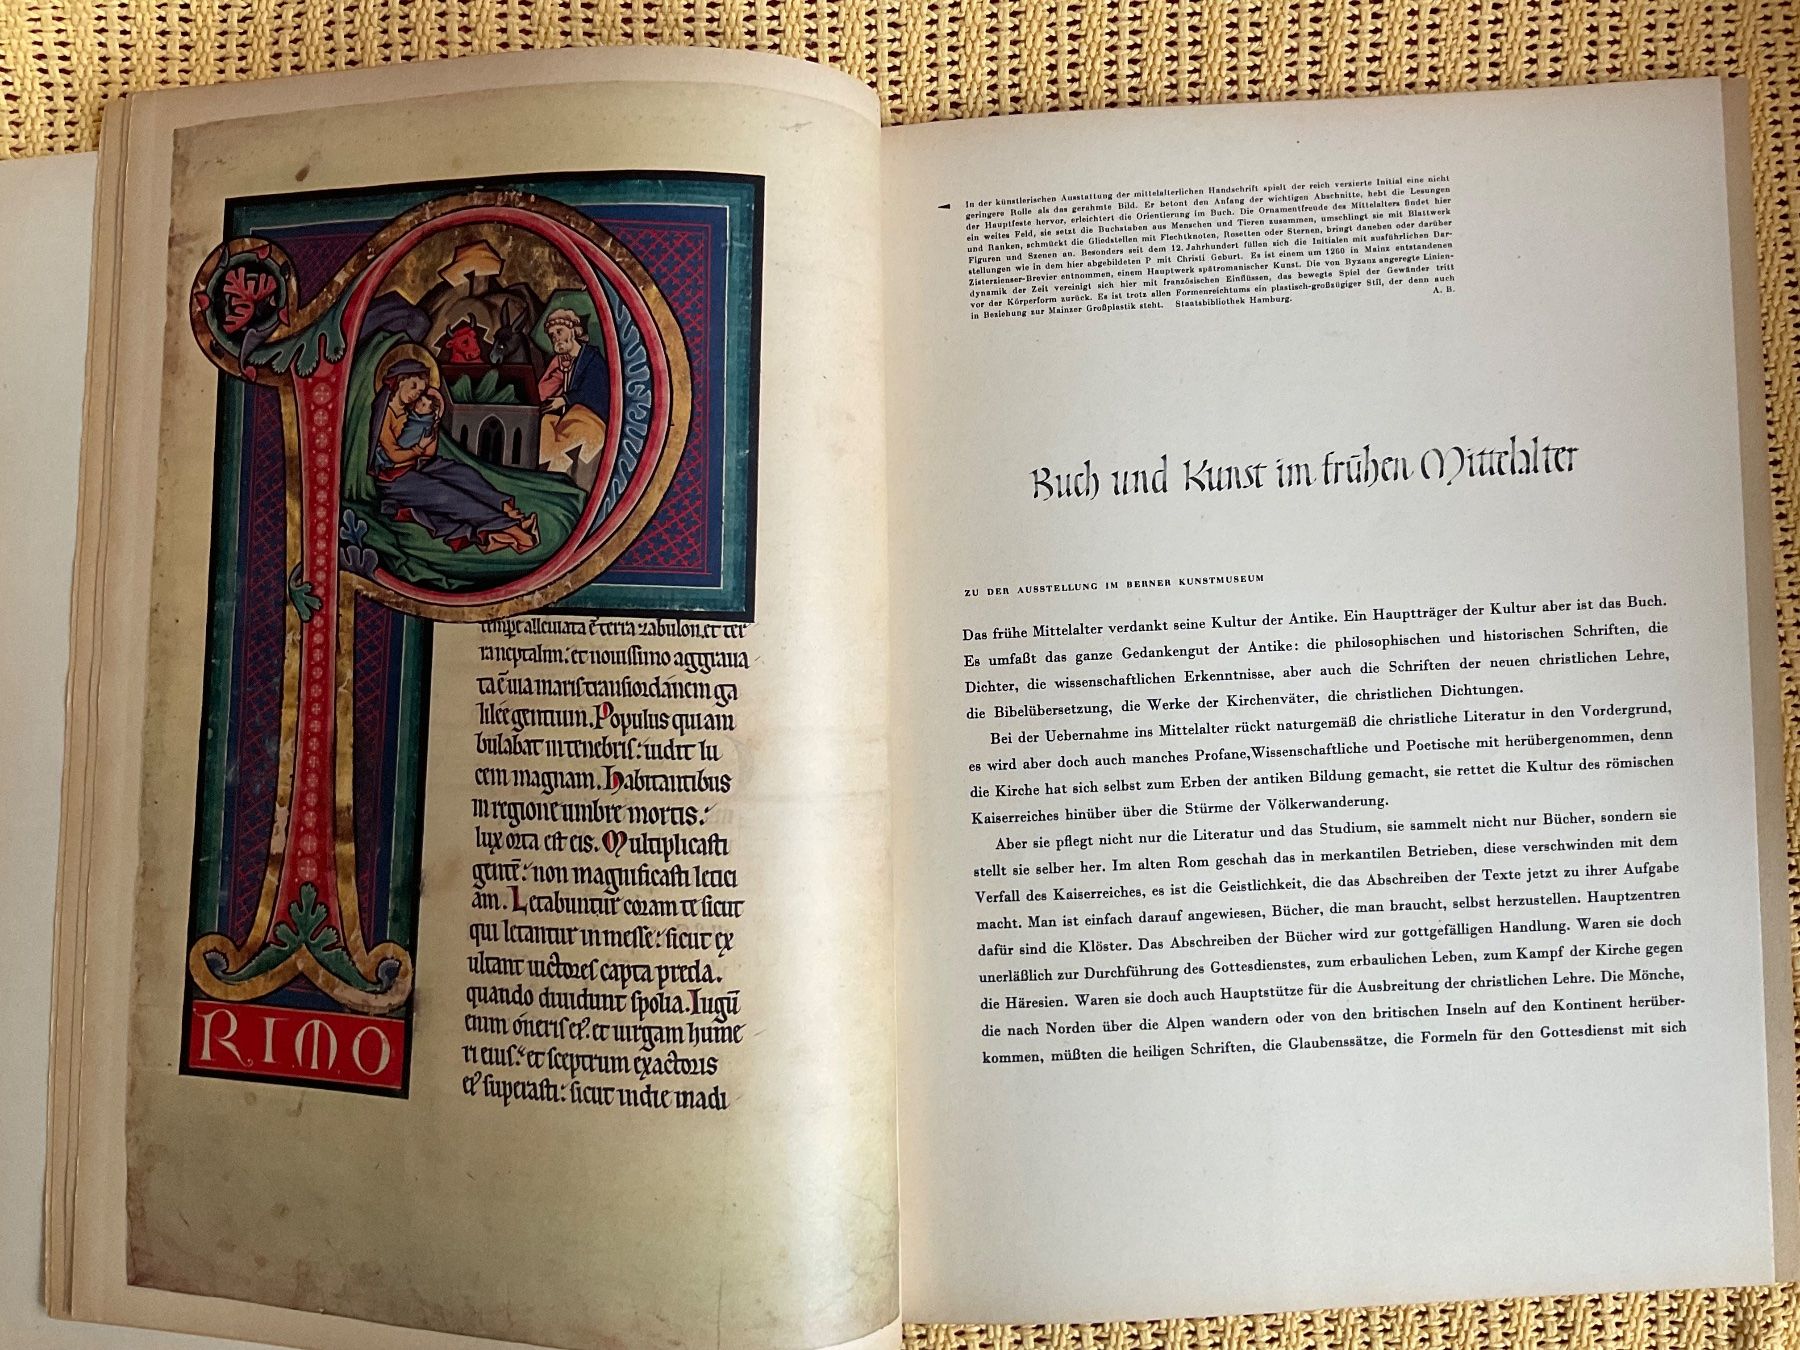 RIMO
tempe alleuiata ē terra zabulon. et ter
ra neptalim: et nouissimo aggraua
ta ē uia maris transiordanem ga
lilee gentium. Populus qui am
bulabat in tenebris: uidit lu
cem magnam. Habitantibus
in regione umbre mortis:
lux orta est eis. Multiplicasti
gentē: non magnificasti letici
am. Letabuntur coram te sicut
qui letantur in messe: sicut ex
ultant uictores capta preda.
quando diuidunt spolia. Iugū
enim oneris eꝰ. et uirgam hume
ri eius: et sceptrum exactoris
eꝰ superasti: sicut in die madi
In der künstlerischen Ausstattung der mittelalterlichen Handschrift spielt der reich verzierte Initial eine nicht
geringere Rolle als das gerahmte Bild. Er betont den Anfang der wichtigen Abschnitte, hebt die Lesungen
der Hauptfeste hervor, erleichtert die Orientierung im Buch. Die Ornamentfreude des Mittelalters findet hier
ein weites Feld, sie setzt die Buchstaben aus Menschen und Tieren zusammen, umschlingt sie mit Blattwerk
und Ranken, schmückt die Gliedstellen mit Flechtknoten, Rosetten oder Sternen, bringt daneben oder darüber
Figuren und Szenen an. Besonders seit dem 12. Jahrhundert füllen sich die Initialen mit ausführlichen Dar-
stellungen wie in dem hier abgebildeten P mit Christi Geburt. Es ist einem um 1260 in Mainz entstandenen
Zisterzienser-Brevier entnommen, einem Hauptwerk spätromanischer Kunst. Die von Byzanz angeregte Linien-
dynamik der Zeit vereinigt sich hier mit französischen Einflüssen, das bewegte Spiel der Gewänder tritt
vor der Körperform zurück. Es ist trotz allen Formenreichtums ein plastisch-großzügiger Stil, der denn auch
in Beziehung zur Mainzer Großplastik steht. Staatsbibliothek Hamburg. A. B.
Buch und Kunst im frühen Mittelalter
ZU DER AUSSTELLUNG IM BERNER KUNSTMUSEUM
Das frühe Mittelalter verdankt seine Kultur der Antike. Ein Hauptträger der Kultur aber ist das Buch.
Es umfaßt das ganze Gedankengut der Antike: die philosophischen und historischen Schriften, die
Dichter, die wissenschaftlichen Erkenntnisse, aber auch die Schriften der neuen christlichen Lehre,
die Bibelübersetzung, die Werke der Kirchenväter, die christlichen Dichtungen.
Bei der Uebernahme ins Mittelalter rückt naturgemäß die christliche Literatur in den Vordergrund,
es wird aber doch auch manches Profane, Wissenschaftliche und Poetische mit herübergenommen, denn
die Kirche hat sich selbst zum Erben der antiken Bildung gemacht, sie rettet die Kultur des römischen
Kaiserreiches hinüber über die Stürme der Völkerwanderung.
Aber sie pflegt nicht nur die Literatur und das Studium, sie sammelt nicht nur Bücher, sondern sie
stellt sie selber her. Im alten Rom geschah das in merkantilen Betrieben, diese verschwinden mit dem
Verfall des Kaiserreiches, es ist die Geistlichkeit, die das Abschreiben der Texte jetzt zu ihrer Aufgabe
macht. Man ist einfach darauf angewiesen, Bücher, die man braucht, selbst herzustellen. Hauptzentren
dafür sind die Klöster. Das Abschreiben der Bücher wird zur gottgefälligen Handlung. Waren sie doch
unerläßlich zur Durchführung des Gottesdienstes, zum erbaulichen Leben, zum Kampf der Kirche gegen
die Häresien. Waren sie doch auch Hauptstütze für die Ausbreitung der christlichen Lehre. Die Mönche,
die nach Norden über die Alpen wandern oder von den britischen Inseln auf den Kontinent herüber-
kommen, müßten die heiligen Schriften, die Glaubenssätze, die Formeln für den Gottesdienst mit sich